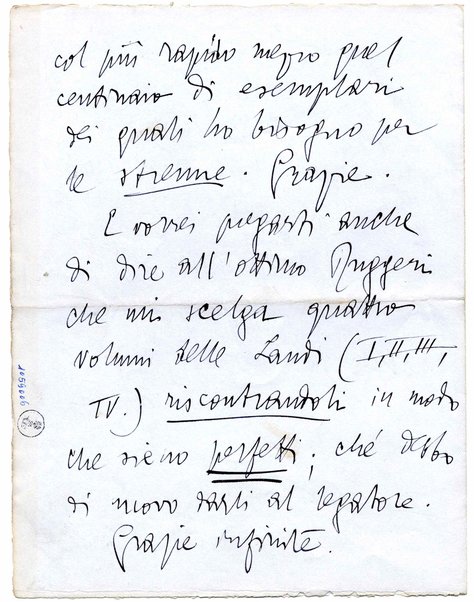 col più rapido mezzo quel
centinaio di esemplari
dei quali ho bisogno per
le strenne. Grazie.
E vorrei pregarti anche
di dire all'ottimo Ruggeri
che mi scelga quattro
volumi delle Laudi (I, II, III,
IV.) riscontrandoli in modo
che sieno perfetti; ché debbo
di nuovo darli al legatore.
Grazie infinite.